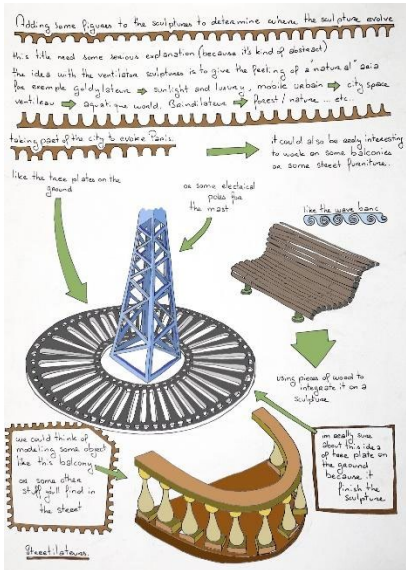 Adding some figures to the sculptures to determine where the sculpture evolve
this title need some serious explanation (because it's kind of abstract)
the idea with the ventilator sculptures is to give the feeling of a "natural" area
for exemple goldylateur → sunlight and luxury, mobile urbain → city space
ventileau → aquatique world. Brindilateur → forest / nature ... etc..
taking part of the city to evoke Paris.
it could also be really interesting
to work on some balconies
or some street furniture..
like the tree plates on the
ground
or some electrical
poles for
the mast
like the wave banc
using pieces of wood to
integrate it on a
sculpture
we could think of
modeling some object
like this balcony
or some other
stuff you'll find in
the street
im really sure
about this idea
of tree plate on
the ground
because it
finish the
sculpture
Streetilateurs.